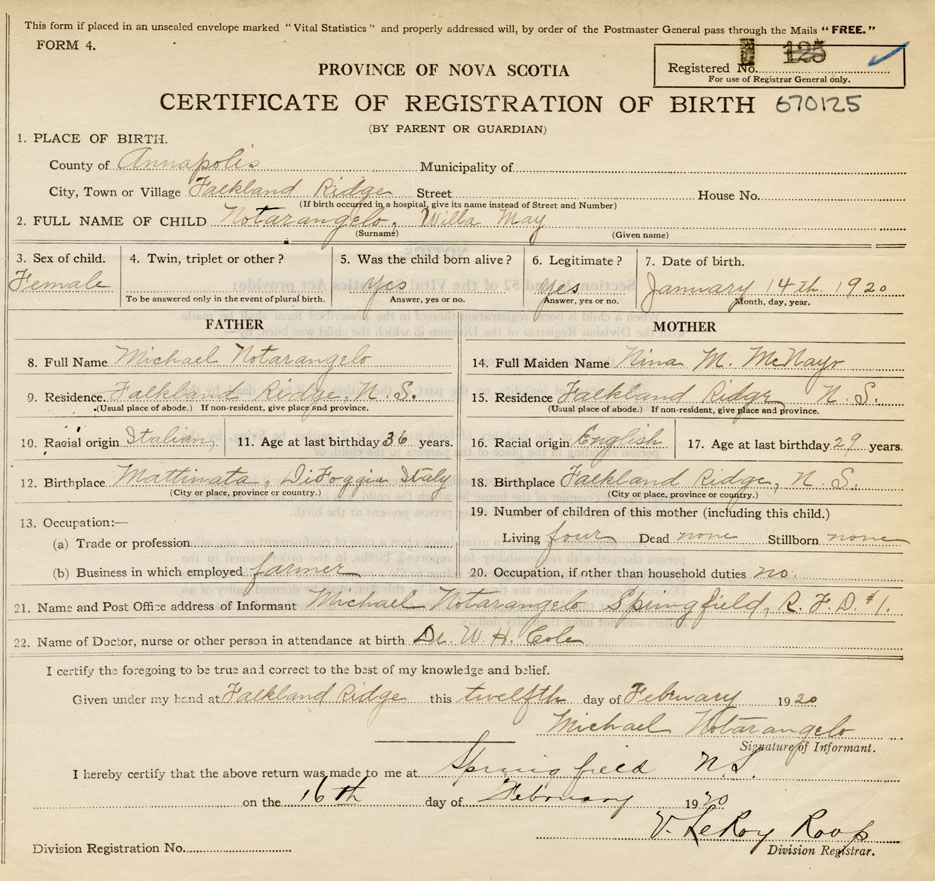 This form if placed in an unsealed envelope marked "Vital Statistics" and properly addressed will, by order of the Postmaster General pass through the Mails "FREE."
FORM 4.
Registered No. 125
For use of Registrar General only.
PROVINCE OF NOVA SCOTIA
CERTIFICATE OF REGISTRATION OF BIRTH 670125
(BY PARENT OR GUARDIAN)
1. PLACE OF BIRTH.
County of Annapolis Municipality of
City, Town or Village Falkland Ridge Street House No.
(If birth occurred in a hospital, give its name instead of Street and Number)
2. FULL NAME OF CHILD Notarangelo, Willa May
(Surname) (Given name)
3. Sex of child. 4. Twin, triplet or other? 5. Was the child born alive? 6. Legitimate? 7. Date of birth.
Female yes yes January 14th. 1920
To be answered only in the event of plural birth. Answer, yes or no. Answer, yes or no. Month, day, year.
FATHER MOTHER
8. Full Name Michael Notarangelo 14. Full Maiden Name Nina M. McNayr
9. Residence. Falkland Ridge, N. S. 15. Residence Falkland Ridge N. S.
(Usual place of abode.) If non-resident, give place and province. (Usual place of abode.) If non-resident, give place and province.
10. Racial origin Italian 11. Age at last birthday 36 years. 16. Racial origin English 17. Age at last birthday 29 years.
12. Birthplace Mattinata, DiFoggia Italy 18. Birthplace Falkland Ridge, N. S.
(City or place, province or country.) (City or place, province or country.)
13. Occupation:— 19. Number of children of this mother (including this child.)
(a) Trade or profession Living four Dead none Stillborn none
(b) Business in which employed farmer 20. Occupation, if other than household duties no.
21. Name and Post Office address of Informant Michael Notarangelo Springfield, R. F. D. #1.
22. Name of Doctor, nurse or other person in attendance at birth Dr. W. H. Cole
I certify the foregoing to be true and correct to the best of my knowledge and belief.
Given under my hand at Falkland Ridge this twelfth day of February 1920
Michael Notarangelo
Signature of Informant.
I hereby certify that the above return was made to me at Springfield N.S.
on the 16th day of February 1920
V. LeRoy Roop
Division Registration No. Division Registrar.